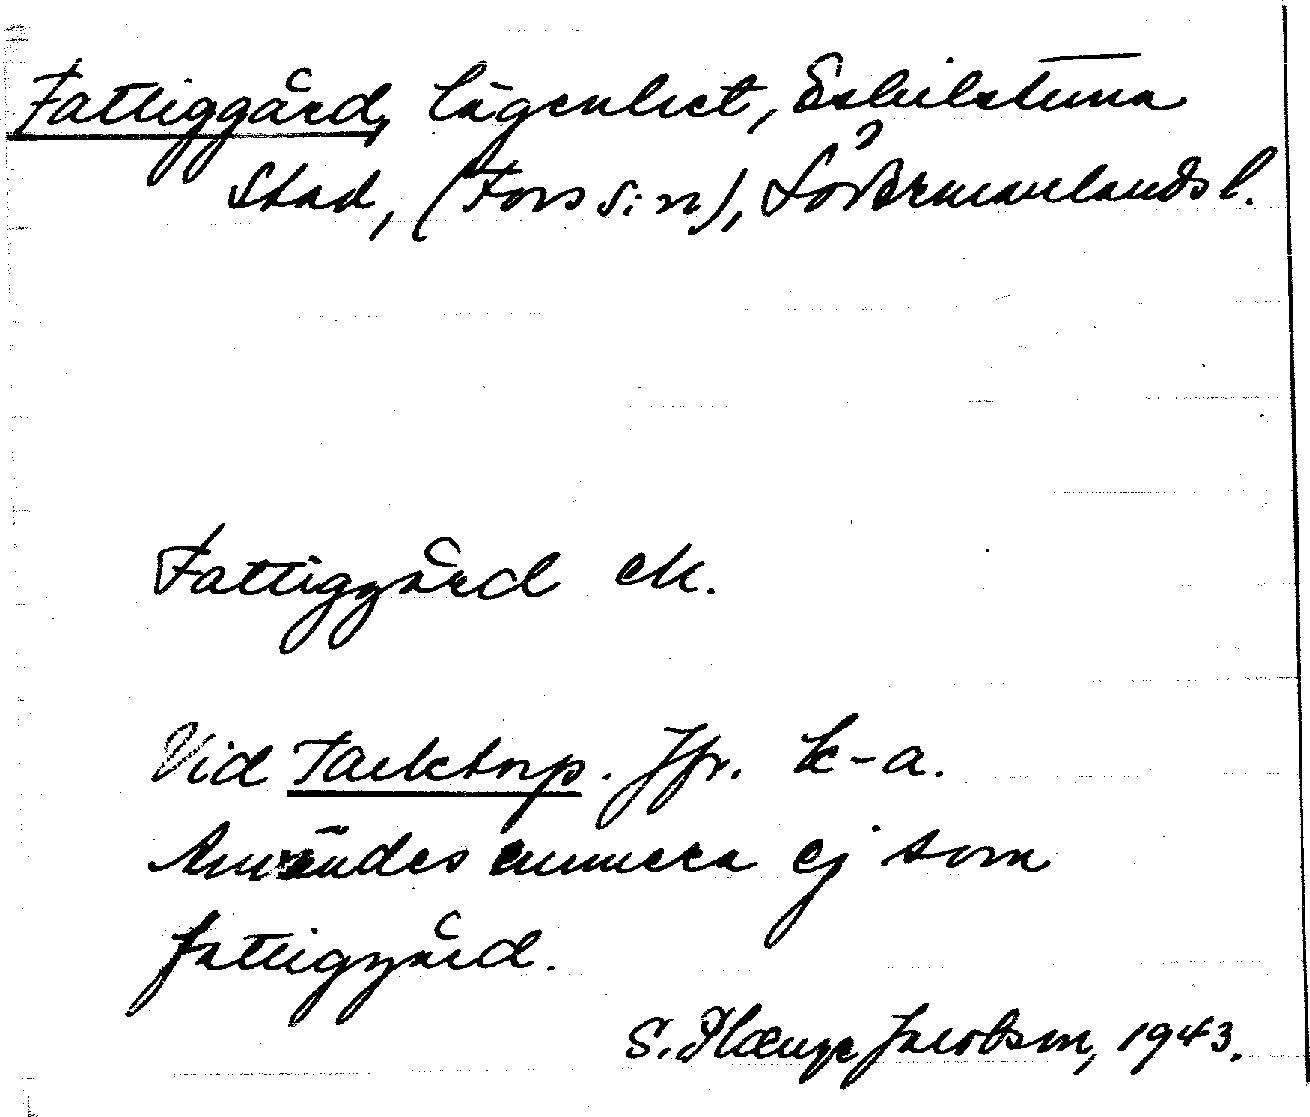 Fattiggård, lägenhet, Eskilstuna
Stad, (Fors s:n), Södermanlands l.
Fattiggård ek.
Vid Tacktorp. Jfr. k-a.
Användes numera ej som
fattiggård.
S. Plænge Jacobson, 1943.